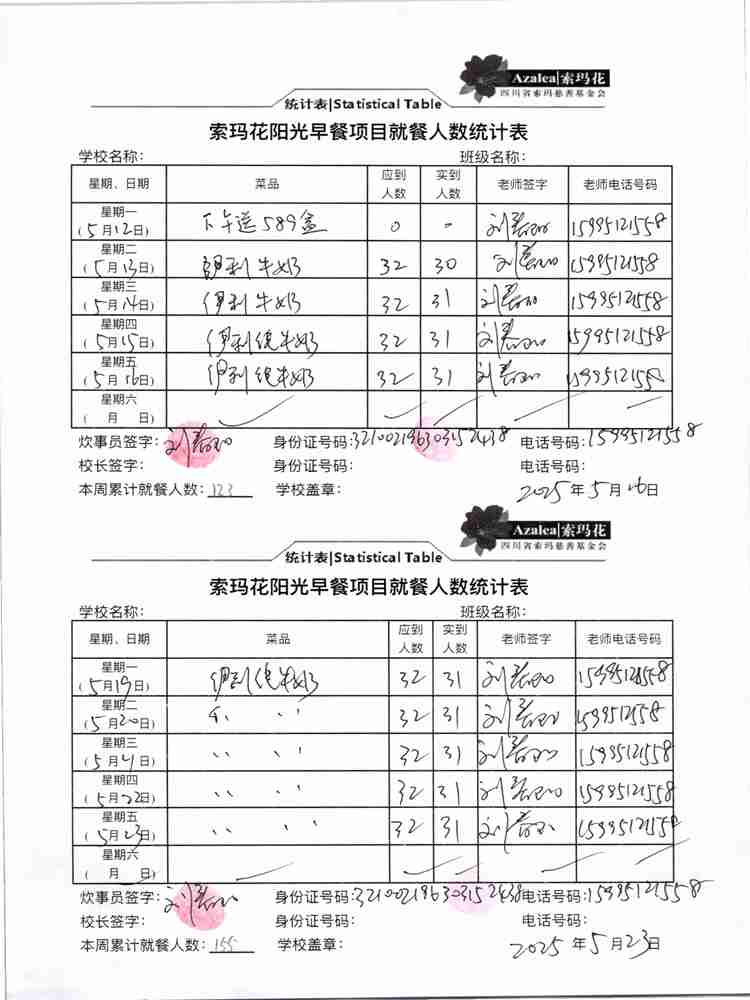 Azalea|索玛花
四川省索玛慈善基金会
统计表|Statistical Table
索玛花阳光早餐项目就餐人数统计表
学校名称： 班级名称：
星期、日期 菜品 应到人数 实到人数 老师签字 老师电话号码
星期一 (5月12日) 下午送589盒 0 - 刘 15995121558
星期二 (5月13日) 伊利牛奶 32 30 刘 15995121558
星期三 (5月14日) 伊利牛奶 32 31 刘 15995121558
星期四 (5月15日) 伊利纯牛奶 32 31 刘 15995121558
星期五 (5月16日) 伊利纯牛奶 32 31 刘 15995121558
星期六 ( 月 日)
炊事员签字：刘 身份证号码：321002196303152438 电话号码：15995121558
校长签字： 身份证号码： 电话号码：
本周累计就餐人数：123 学校盖章： 2025年5月16日
Azalea|索玛花
四川省索玛慈善基金会
统计表|Statistical Table
索玛花阳光早餐项目就餐人数统计表
学校名称： 班级名称：
星期、日期 菜品 应到人数 实到人数 老师签字 老师电话号码
星期一 (5月19日) 伊利纯牛奶 32 31 刘 15995121558
星期二 (5月20日) 〃 〃 32 31 刘 15995121558
星期三 (5月21日) 〃 〃 32 31 刘 15995121558
星期四 (5月22日) 〃 〃 32 31 刘 15995121558
星期五 (5月23日) 〃 〃 32 31 刘 15995121558
星期六 ( 月 日)
炊事员签字：刘 身份证号码：321002196303152438 电话号码：15995121558
校长签字： 身份证号码： 电话号码：
本周累计就餐人数：155 学校盖章： 2025年5月23日